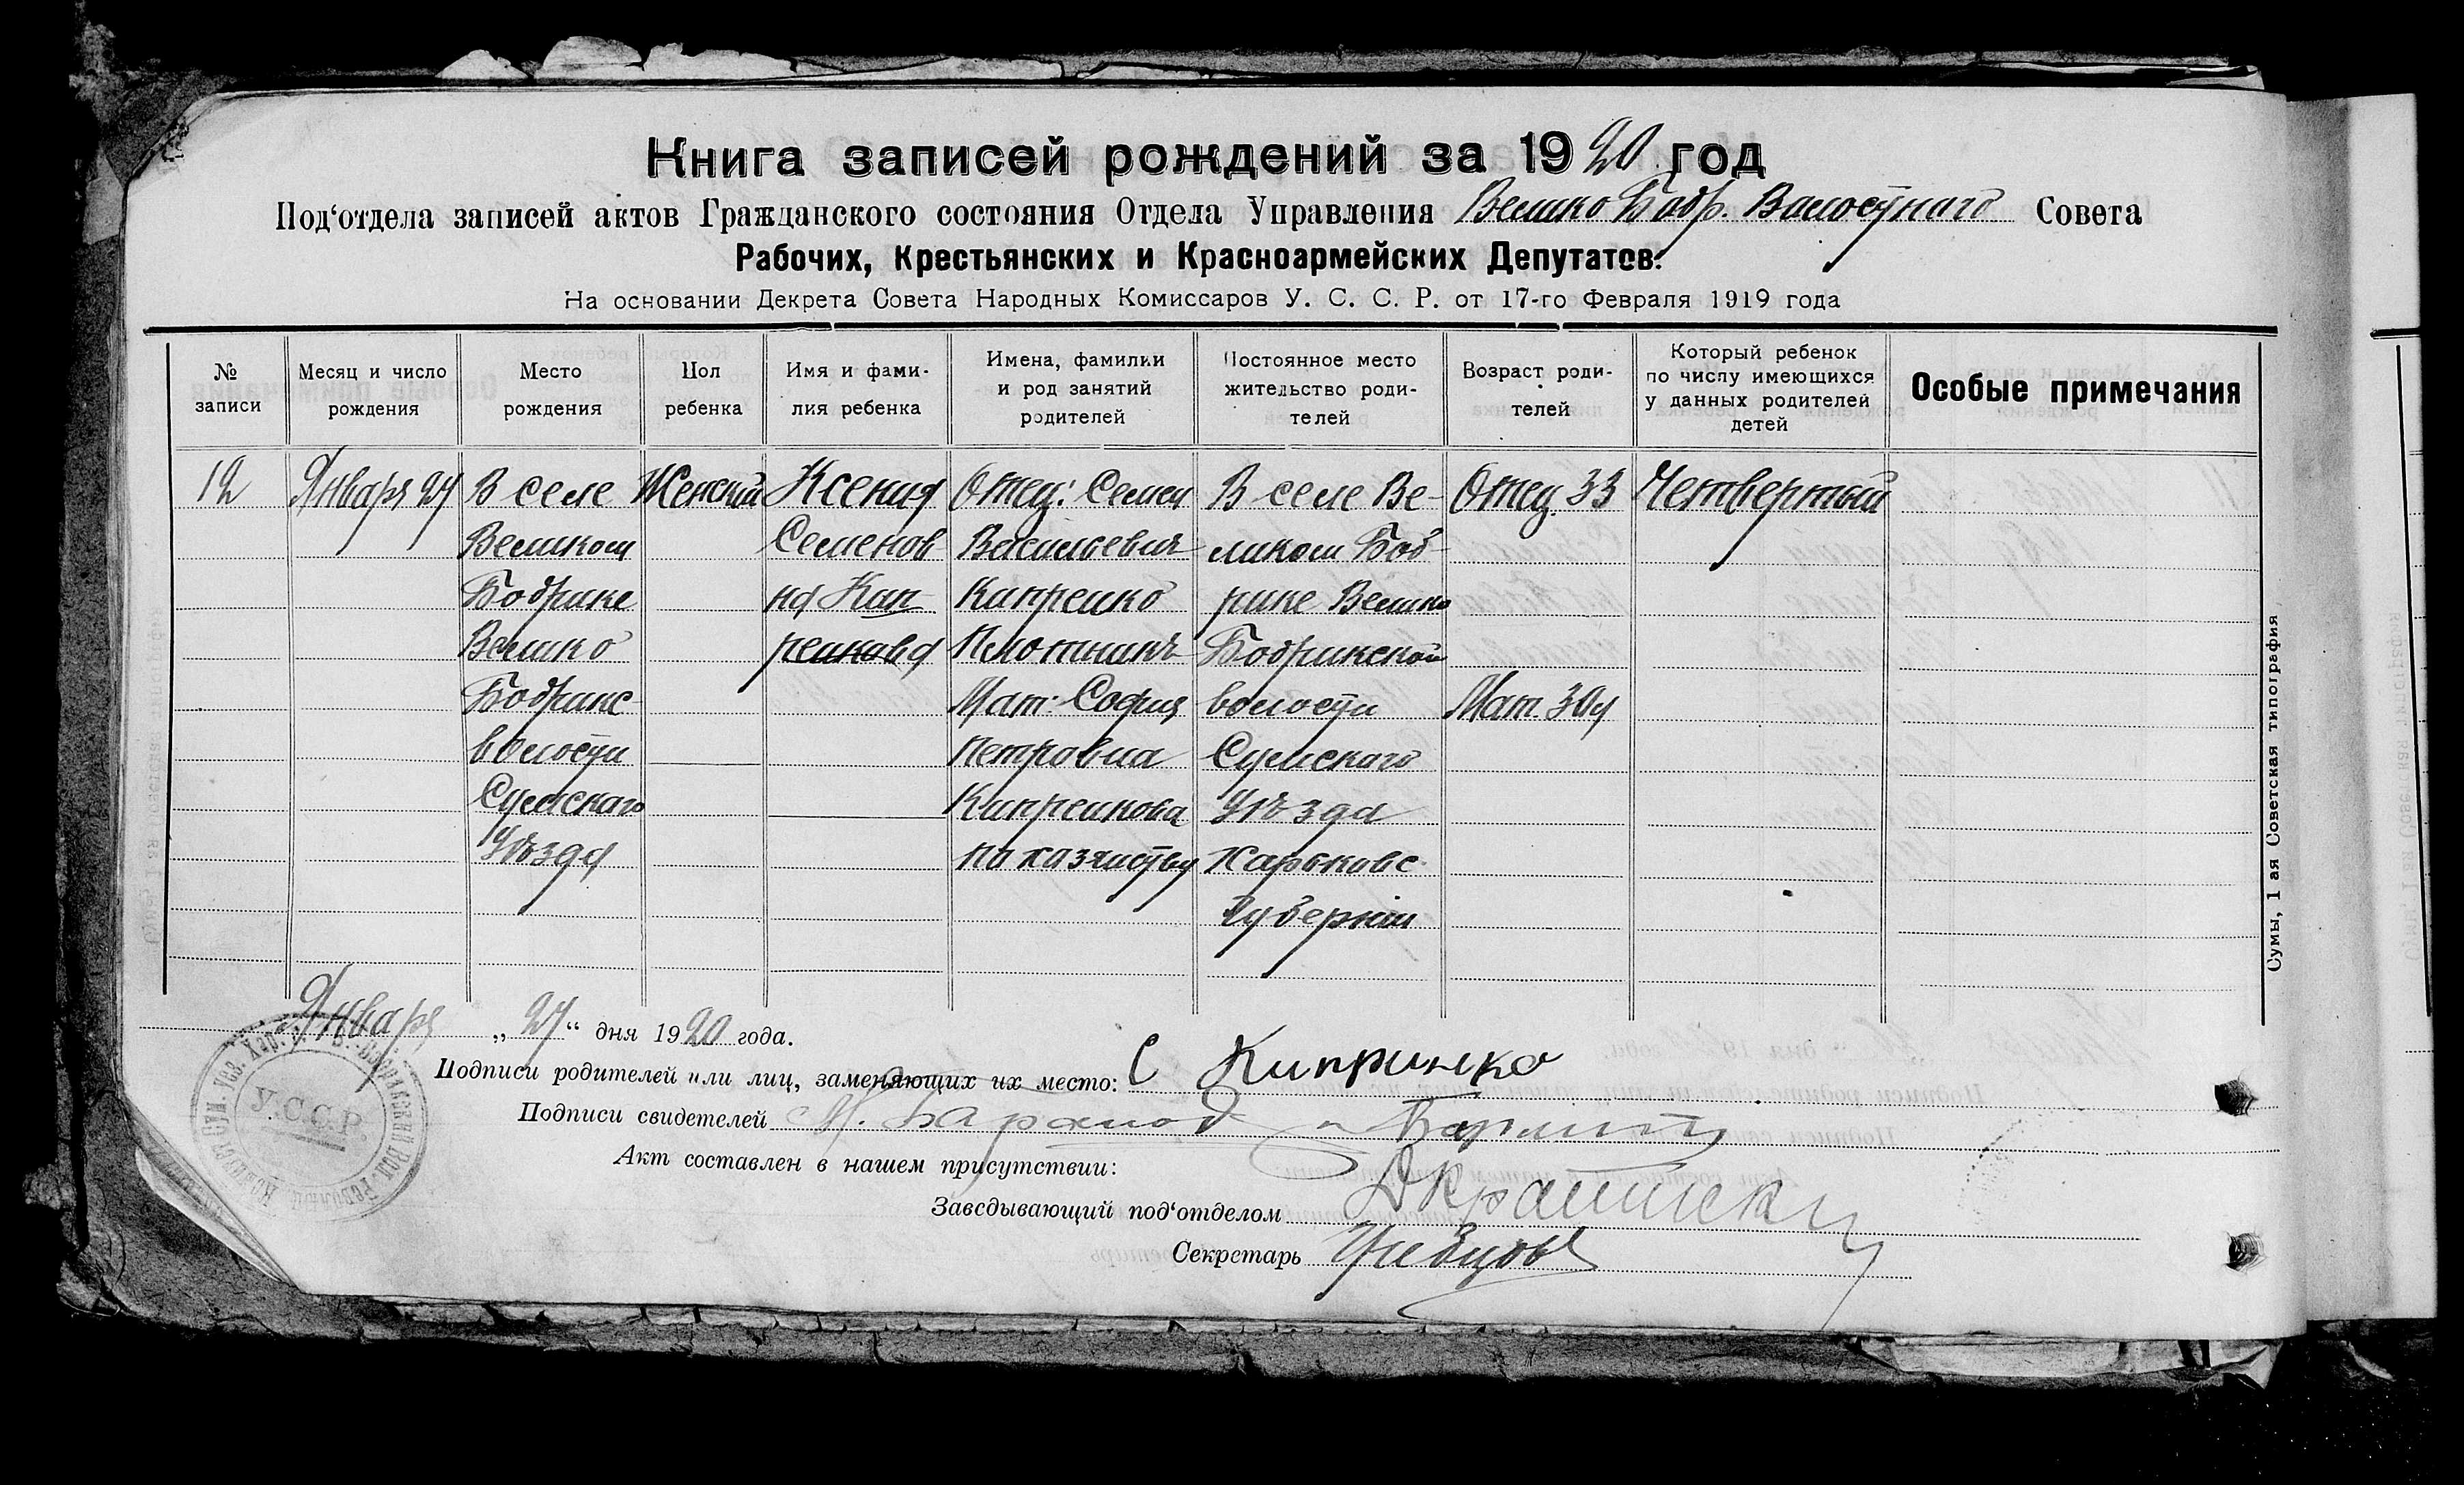 Книга записей рождений за 1920 год
Под'отдела записей актов Гражданского состояния Отдела Управления Велико Бобр. Волостнаго Совета
Рабочих, Крестьянских и Красноармейских Депутатов.
На основании Декрета Совета Народных Комиссаров У. С. С. Р. от 17-го Февраля 1919 года
№ записи
Месяц и число рождения
Место рождения
Пол ребенка
Имя и фами-
лия ребенка
Имена, фамилии
и род занятий
родителей
Постоянное место
жительство роди-
телей
Возраст роди-
телей
Который ребенок
по числу имеющихся
у данных родителей
детей
Особые примечания
12
Января 27
В селе
Великом
Бобрике
Велико
Бобрикс
волости
Сумскаго
Уѣзда
Женский
Ксения
Семенов
на Кип
ренкова
Отец: Семен
Васильевич
Кипренко
Плотникъ
Мат: София
Петровна
Кипренкова
по хазяйству
В селе Ве-
ликом Боб-
рике Велико
Бобрикской
волости
Сумскаго
Уѣзда
Харьковс
Губернии
Отец. 33
Мат. 30
Четвертый
Января „27“ дня 1920 года.
Подписи родителей или лиц, заменяющих их место: С Кипринко
Подписи свидетелей
Акт составлен в нашем присутствии:
Заведывающий под'отделом
Секретарь
У.С.С.Р.
Сумы, 1 ая Советская типография